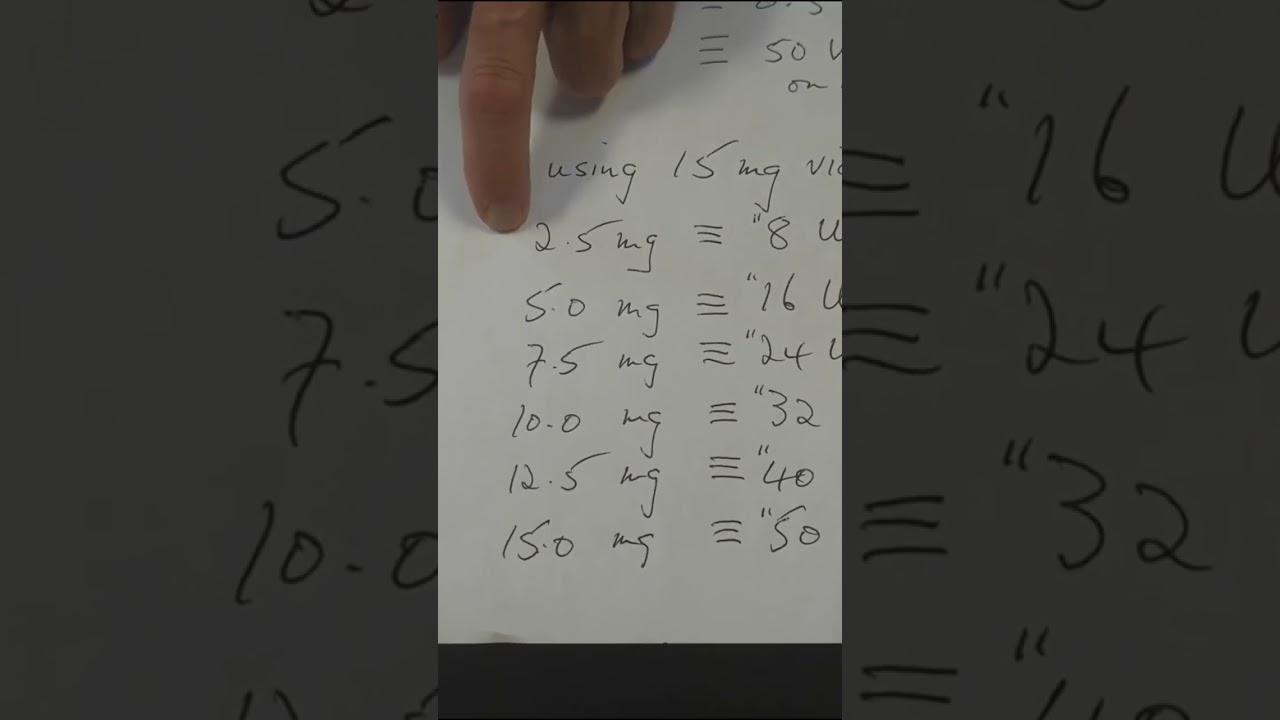 ≡ 50
on
using 15 mg
2.5 mg ≡ "8 U
5.0 mg ≡ "16 U
7.5 mg ≡ "24 U
10.0 mg ≡ "32
12.5 mg ≡ "40
15.0 mg ≡ "50